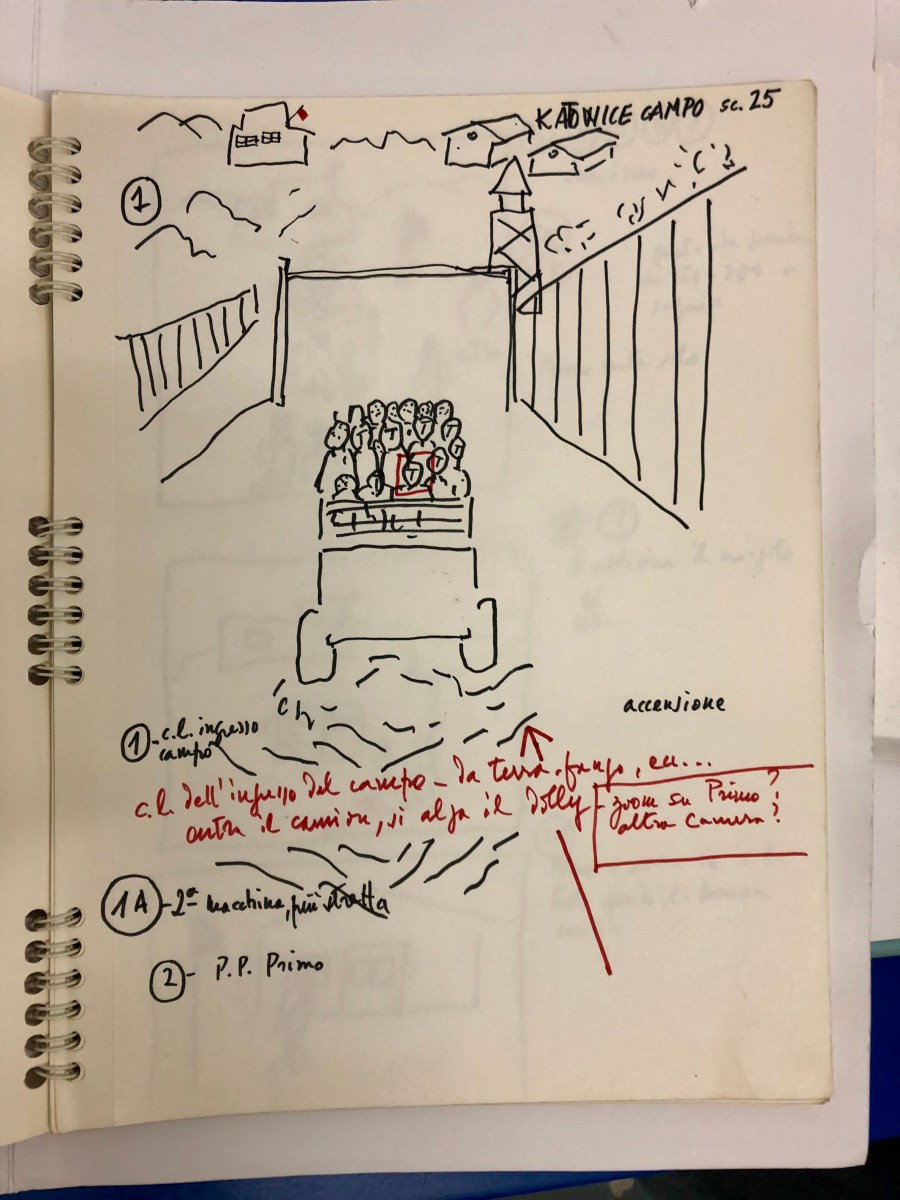 KATOWICE CAMPO sc. 25
1
accensione
1 - c.l. ingresso
campo
c.l. dell'ingresso del campo - da terra, fango, ecc...
entra il camion, si alza il Dolly - zoom su Primo?
altra camera?
1A - 2a macchina, più stretta
2 - P.P. Primo